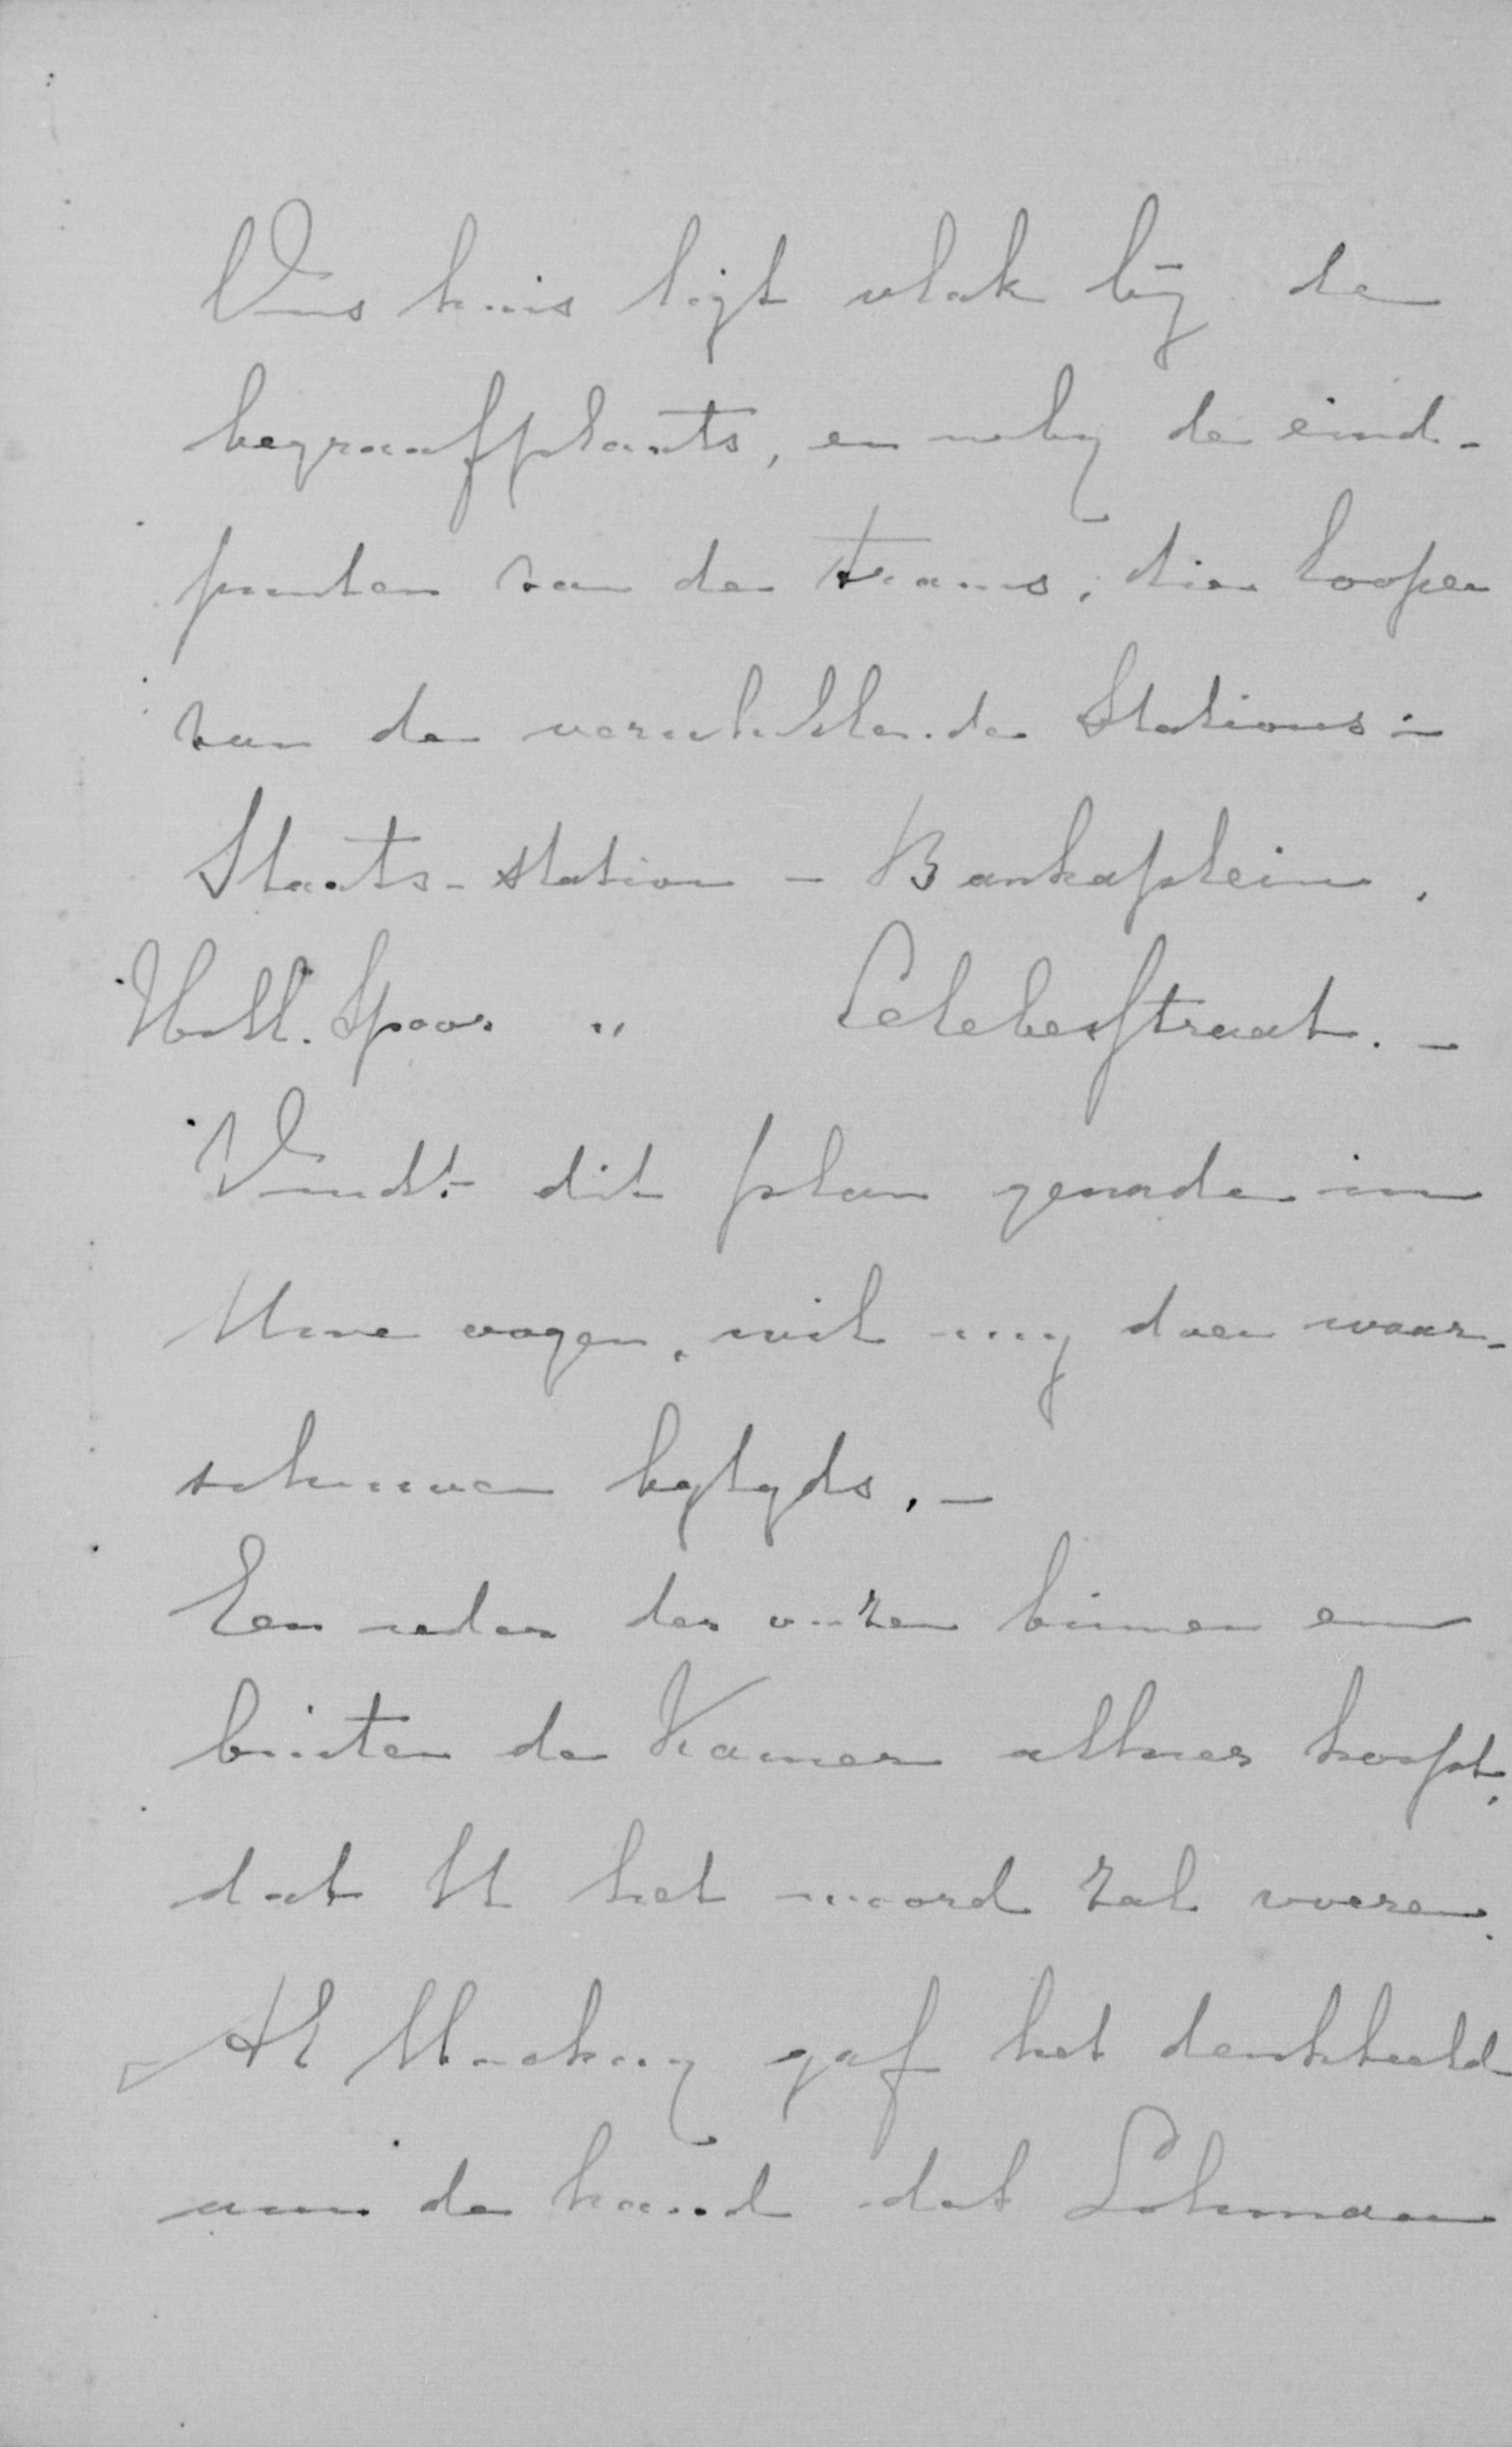 Ons huis ligt vlak bij de
begraafplaats, en naby de eind-
punten van de trams, die loopen
van de verschillende Stations:
Staats-station - Bankaplein.
Holl. Spoor " Celebesstraat. -
Vindt dit plan genade in
Uwe oogen, wil my doen waar-
schuwen bytyds. -
Een ieder der onzen binnen en
buiten de Kamer alhier hoopt,
dat U het woord zal voeren.
AE Mackay gaf het denkbeeld
aan de hand dat Lohman